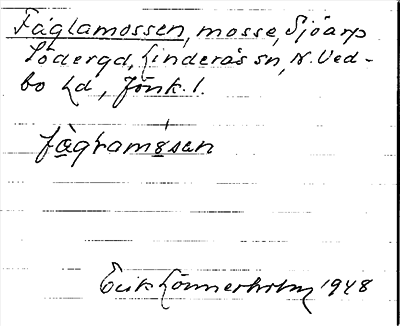 Fåglamossen, mosse, Sjöarp
Södergd, Linderås sn, N. Ved-
bo hd, Jönk. l.
fågɩamosen
Erik Lönnerholm 1948